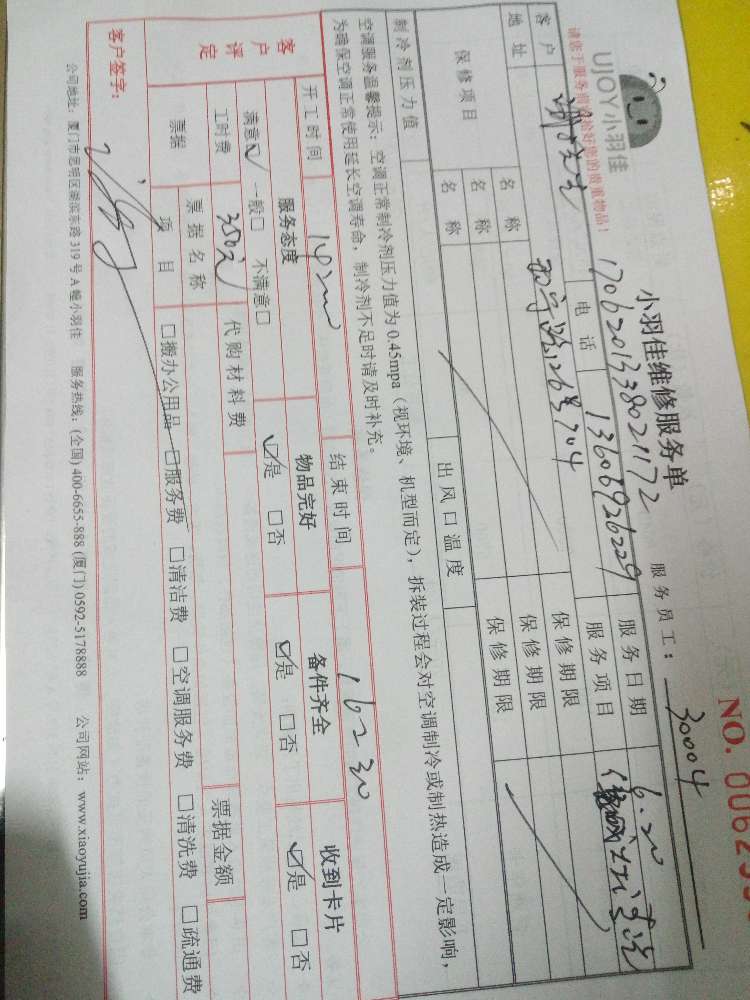 UJOY小羽佳
小羽佳维修服务单
NO. 0062
请您于服务前 检好您的贵重物品!
1706201338021172
服务员工: 30004
客户 电话 13606926229 服务日期 6.20
地址 1263704 服务项目
保修项目 名称 保修期限
名称 保修期限
名称 保修期限
制冷剂压力值 出风口温度
空调服务温馨提示:空调正常制冷剂压力值为0.45mpa(视环境、机型而定),拆装过程会对空调制冷或制热造成一定影响,
为确保空调正常使用延长空调寿命,制冷剂不足时请及时补充。
开工时间 14:20 结束时间 16:30
客户评定 服务态度 物品完好 备件齐全 收到卡片
满意☑ 一般□ 不满意□ ☑是 □否 ☑是 □否 ☑是 □否
工时费 350元 代购材料费
票据 票据名称 票据金额
项目 □搬办公用品 □服务费 □清洁费 □空调服务费 □清洗费 □疏通费
客户签字:
公司地址:厦门市思明区湖滨东路319号A幢小羽佳 服务热线:(全国)400-6655-888(厦门)0592-5178888 公司网站:www.xiaoyujia.com